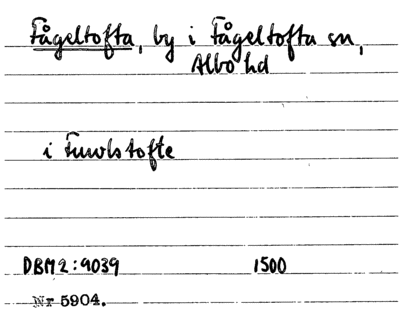 Fågeltofta, by i Fågeltofta sn,
Albo hd
i Fuwlstofte
DBM2:9039 1500
Nr 5904.